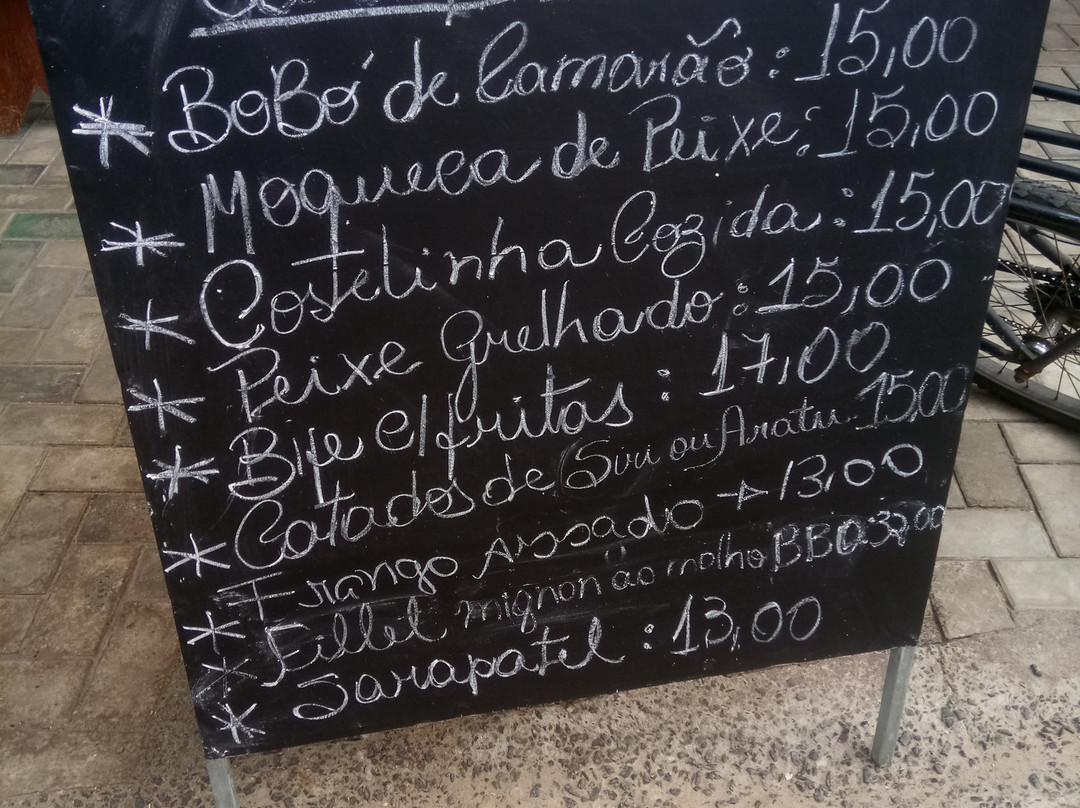 * Bobó de Camarão: 15,00
* Moqueca de Peixe: 15,00
* Costelinha Cozida: 15,00
* Peixe Grelhado: 15,00
* Bife c/ fritas: 17,00
* Catados de Siri ou Aratu 15,00
* Frango Assado → 13,00
* Fillel mignon ao molho BBQ
* Sarapatel: 13,00